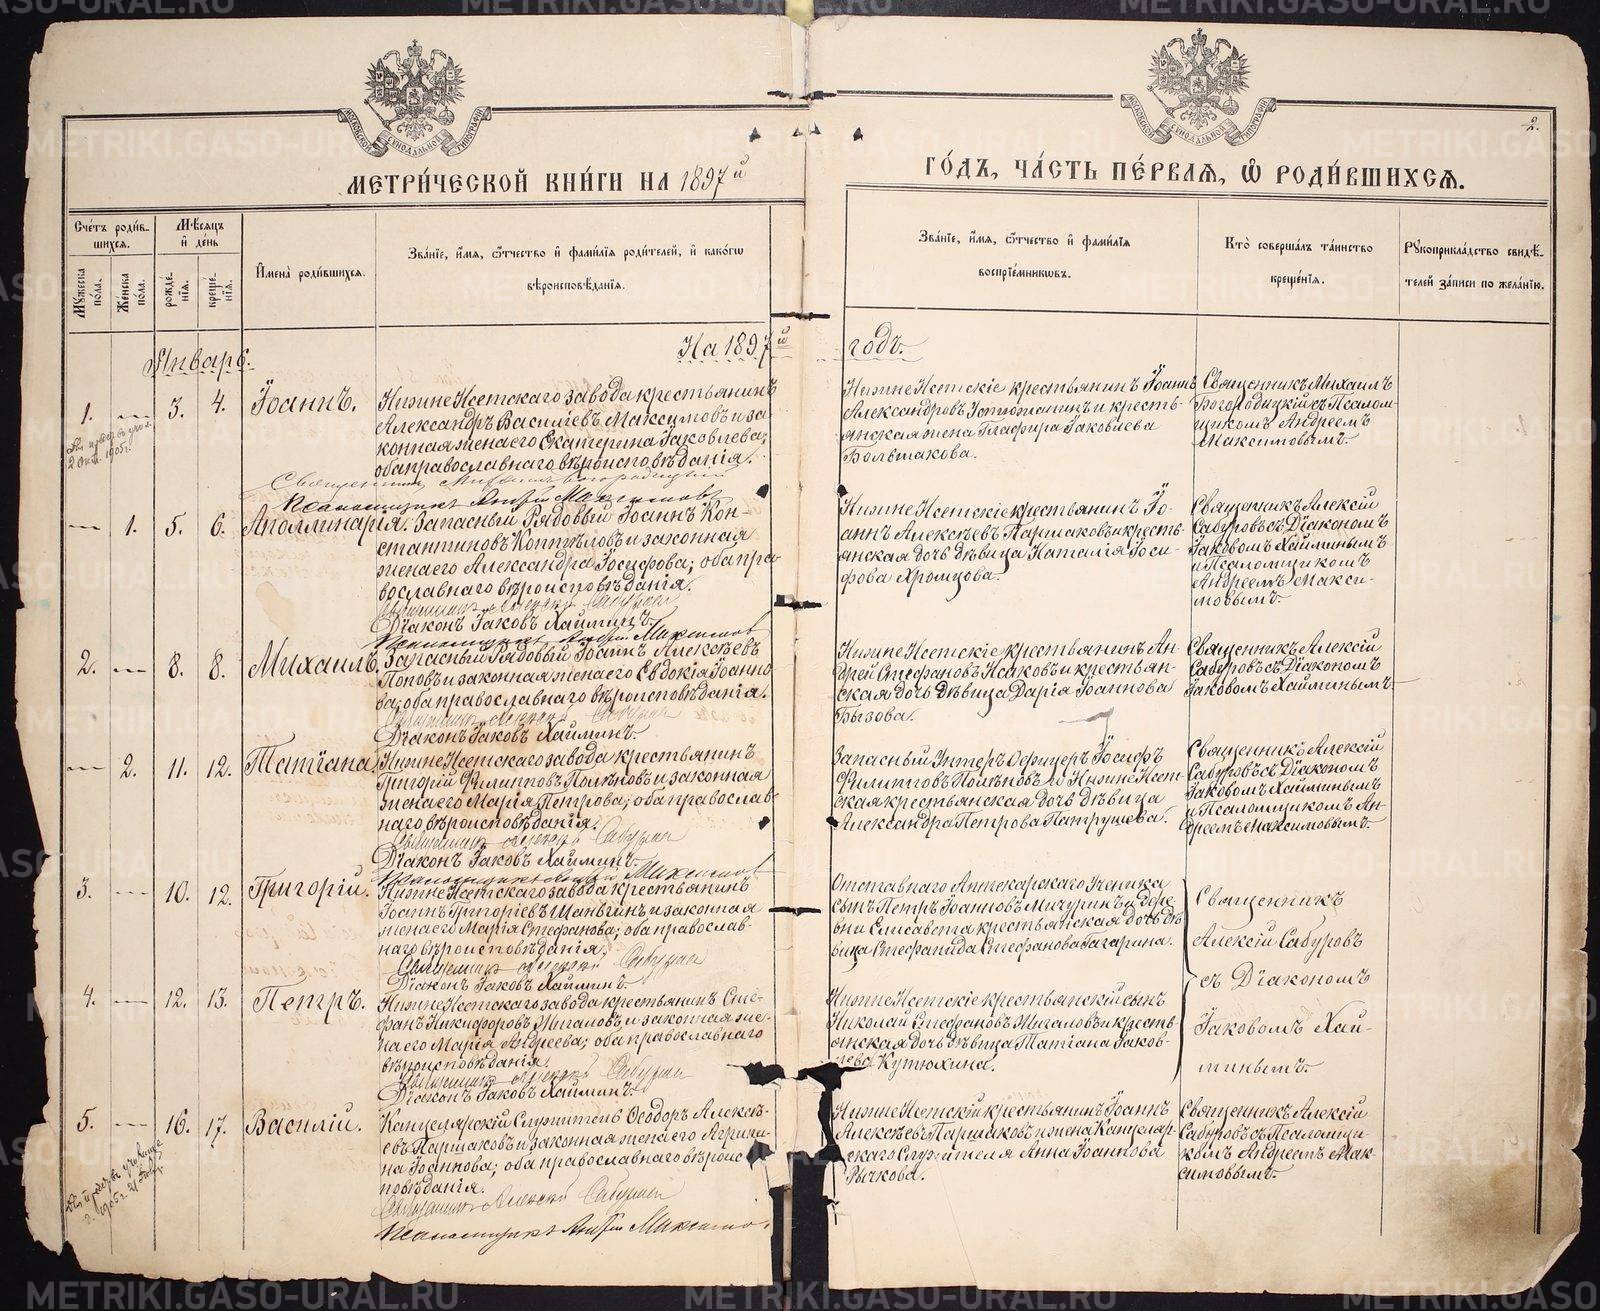 МЕТРИ́ЧЕСКОЙ КНИ́ГИ НА 1897й
ГО́ДЪ, ЧА́СТЬ ПЕ́РВАЯ, Ѽ РОДИ́ВШИХСЯ.
2.
Сче́тъ роди́в-
шихся.
Мѣ́сяцъ
и҆ де́нь
Му́жеска по́ла.
Же́нска по́ла.
рожде́-
нїя.
креще́-
нїя.
И҆мена̀ роди́вшихся.
Зва́нїе, и҆́мя, ѻ҆́тчество и҆ фами́лїя роди́телей, и҆ како́гѡ
вѣроисповѣ́данїя.
Зва́нїе, и҆́мя, ѻ҆́тчество и҆ фами́лїя
воспрїе́мниковъ.
Кто̀ соверша́лъ та́инство
креще́нїя.
Рукоприкла́дство свидѣ́-
телей за́писи по жела́нїю.
Январь.
На 1897й годъ.
1.
3.
4.
Іоаннъ.
НижнеИсетскаго завода крестьянинъ
Александръ Василіевъ Максимовъ и за
конная жена его Екатерина Іаковлева;
оба православнаго вѣроисповѣданія.
Священникъ Михаилъ Богородицкій
Псаломщикъ Андрей Максимовъ
НижнеИсетскіе крестьянинъ Іоаннъ
Александровъ Устюжанинъ и кресть-
янская жена Глафира Іаковлева
Большакова.
Священникъ Михаилъ
Богородицкій съ Псалом-
щикомъ Андреемъ
Максимовымъ.
1.
5.
6.
Аполлинарія.
Запасный Рядовый Іоаннъ Кон-
стантиновъ Коптѣловъ и законная
жена его Александра Іосифова; оба пра
вославнаго вѣроисповѣданія.
Священникъ Алексій Сабуровъ
Діаконъ Іаковъ Хайминъ.
Псаломщикъ Андрей Максимовъ
НижнеИсетскіе крестьянинъ Іо-
аннъ Алексѣевъ Паршаковъ и кресть-
янская дочь дѣвица Наталія Іоси-
фова Хромцова.
Священникъ Алексій
Сабуровъ съ Діакономъ
Іаковомъ Хайминымъ
и Псаломщикомъ
Андреемъ Макси-
мовымъ.
2.
8.
8.
Михаилъ.
Запасный Рядовый Іоаннъ Алексѣевъ
Поповъ и законная жена его Евдокія Іоанно
ва; оба православнаго вѣроисповѣданія.
Священникъ Алексій Сабуровъ
Діаконъ Іаковъ Хайминъ.
НижнеИсетскіе крестьянинъ Ан-
дрей Стефановъ Исаковъ и крестьян-
ская дочь дѣвица Дарія Іоаннова
Бызова.
Священникъ Алексій
Сабуровъ съ Діакономъ
Іаковомъ Хайминымъ.
2.
11.
12.
Татіана.
НижнеИсетскаго завода крестьянинъ
Григорій Филипповъ Полѣновъ и законная
жена его Марія Петрова; оба православ-
наго вѣроисповѣданія.
Священникъ Алексій Сабуровъ
Діаконъ Іаковъ Хайминъ.
Псаломщикъ Андрей Максимовъ
Запасный Унтеръ Офицеръ Іосифъ
Филипповъ Полѣновъ и НижнеИсет-
ская крестьянская дочь дѣвица
Александра Петрова Патрушева.
Священникъ Алексій
Сабуровъ съ Діакономъ
Іаковомъ Хайминымъ
и Псаломщикомъ Ан-
дреемъ Максимовымъ.
3.
10.
12.
Григорій.
НижнеИсетскаго завода крестьянинъ
Іоаннъ Григоріевъ Шаньгинъ и законная
жена его Марія Стефанова; оба православ-
наго вѣроисповѣданія.
Священникъ Алексій Сабуровъ
Діаконъ Іаковъ Хайминъ.
Отставнаго Аптекарскаго Ученика
сынъ Петръ Іоанновъ Мичуринъ и дере
вни Елисавета крестьянская дочь дѣ
вица Стефанида Стефанова Гагарина.
Священникъ
Алексій Сабуровъ
съ Діакономъ
Іаковомъ Хай-
минымъ.
4.
12.
13.
Петръ.
НижнеИсетскаго завода крестьянинъ Сте-
фанъ Никифоровъ Мигаловъ и законная же-
на его Марія Андреева; оба православнаго
вѣроисповѣданія.
Священникъ Алексій Сабуровъ
Діаконъ Іаковъ Хайминъ.
НижнеИсетскіе крестьянскій сынъ
Николай Стефановъ Мигаловъ и кресть-
янская дочь дѣвица Татіана Іаков-
лева Кутюхина.
5.
16.
17.
Василій.
Канцелярскій Служитель Ѳеодоръ Алексѣ-
евъ Паршаковъ и законная жена его Агрипи-
на Іоаннова; оба православнаго вѣроис-
повѣданія.
Священникъ Алексій Сабуровъ
Псаломщикъ Андрей Максимовъ
НижнеИсетскій крестьянинъ Іоаннъ
Алексѣевъ Паршаковъ и жена Канцеляр-
скаго Служителя Анна Іоаннова
Рычкова.
Священникъ Алексій
Сабуровъ съ Псаломщи-
комъ Андреемъ Мак-
симовымъ.
METRIKI.GASO-URAL.RU